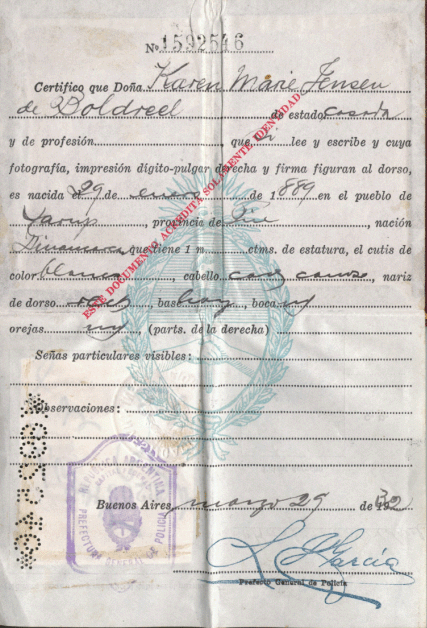 Nº 1592546
Certifico que Doña Karen Marie Jensen
de Boldreel de estado casada
y de profesión, que si lee y escribe y cuya
fotografía, impresión dígito-pulgar derecha y firma figuran al dorso,
es nacida el 29 de enero de 1889 en el pueblo de
, provincia de , nación
Dinamarca que tiene 1 m. ctms. de estatura, el cutis de
color blanco, cabello cano, nariz
de dorso rect, base, boca m
orejas m, (parts. de la derecha)
Señas particulares visibles:
Observaciones:
Buenos Aires, marzo 29 de 1932
L. García
Prefecto General de Policía
ESTE DOCUMENTO ACREDITA SOLAMENTE IDENTIDAD
REPUBLICA ARGENTINA
PREFECTURA GENERAL DE POLICIA